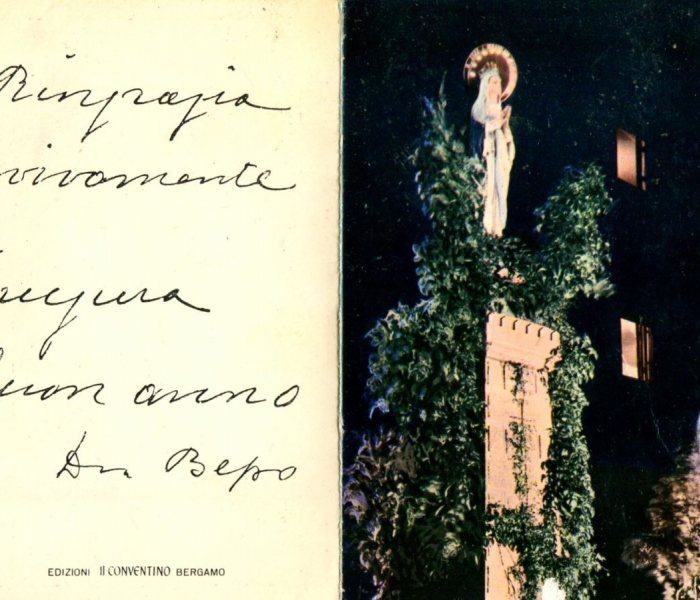 Ringrazia
vivamente
augura
buon anno
Dn. Bepo
EDIZIONI Il CONVENTINO BERGAMO